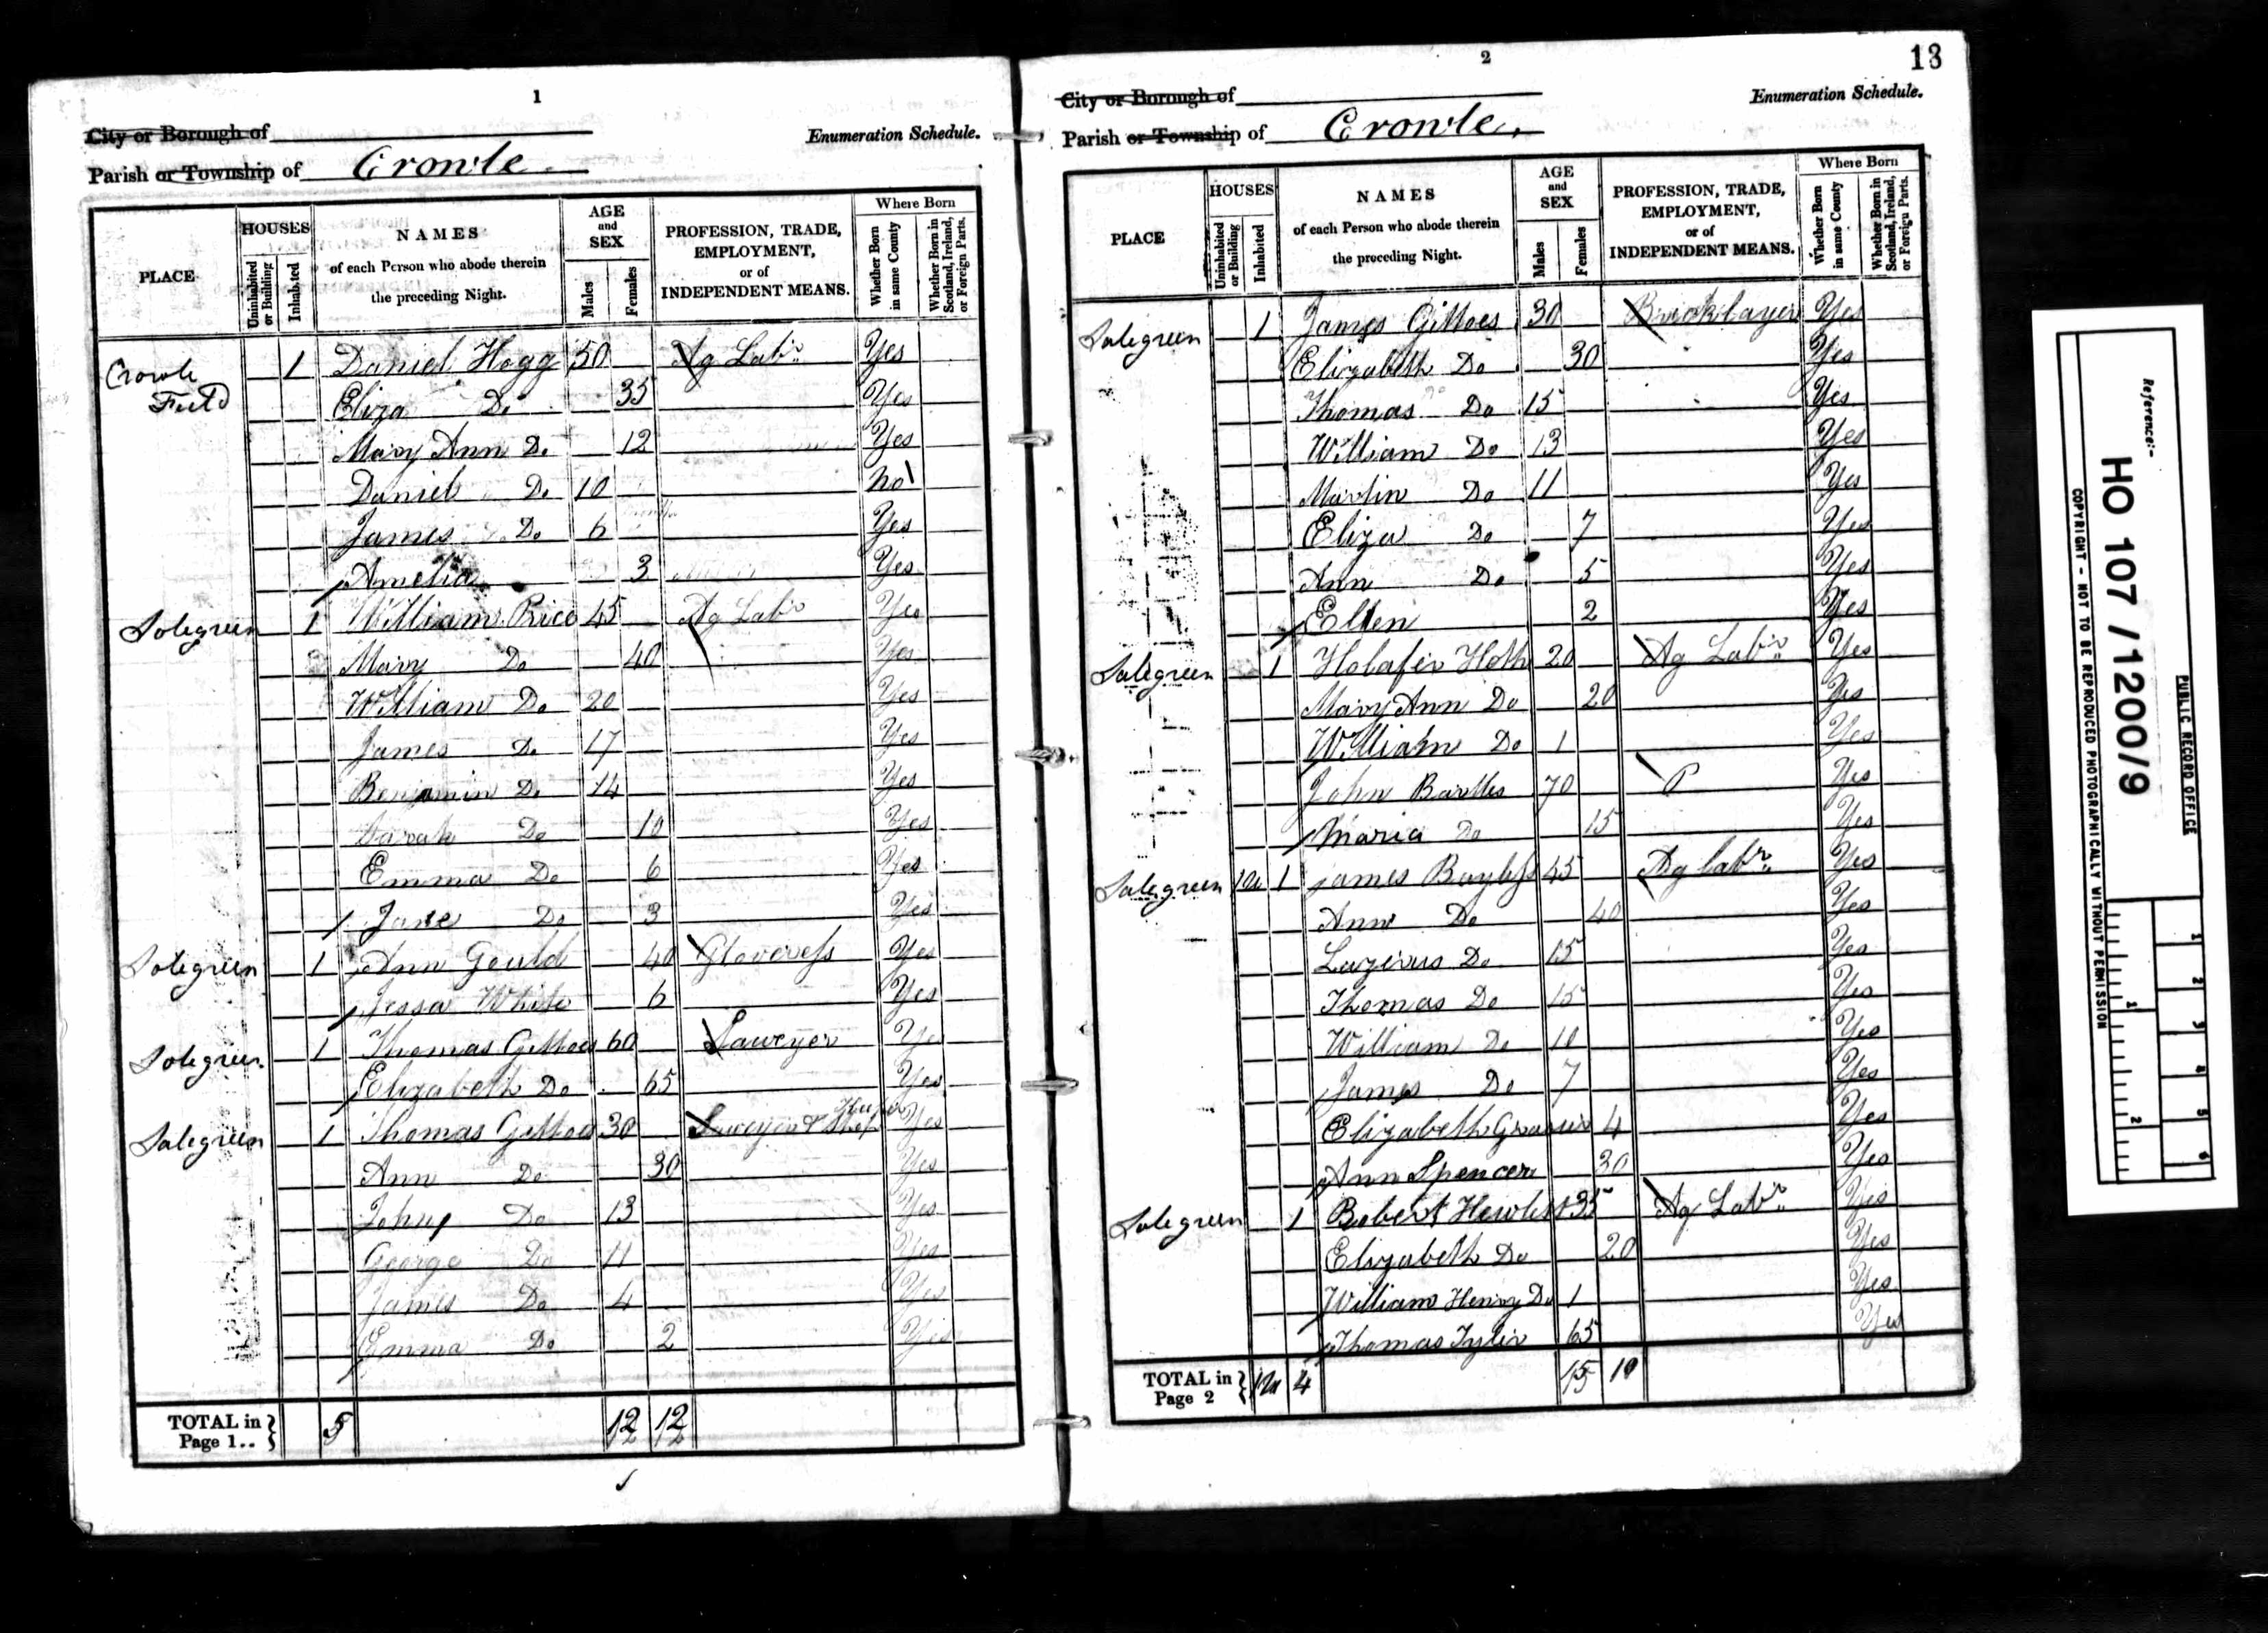 1
City or Borough of
Enumeration Schedule.
Parish or Township of Crowle
PLACE
HOUSES
Uninhabited or Building
Inhabited
NAMES
of each Person who abode therein
the preceding Night.
AGE
and
SEX
Males
Females
PROFESSION, TRADE,
EMPLOYMENT,
or of
INDEPENDENT MEANS.
Where Born
Whether Born in same County
Whether Born in Scotland, Ireland, or Foreign Parts.
Crowle Field 1 Daniel Hogg 50 Ag Labr Yes
Eliza Do 35 Yes
Mary Ann Do 12 Yes
Daniel Do 10 No
James Do 6 Yes
Amelia 3 Yes
Solegreen 1 William Rice 45 Ag Labr Yes
Mary Do 40 Yes
William Do 20 Yes
James Do 17 Yes
Benjamin Do 14 Yes
Sarah Do 10 Yes
Emma Do 6 Yes
Jane Do 3 Yes
Solegreen 1 Ann Gould 40 Gloveress Yes
Jessa White 6 Yes
Solegreen 1 Thomas Gittoes 60 Saweyer Yes
Elizabeth Do 65 Yes
Salegreen 1 Thomas Gittoes 30 Sawyer & Shop Keeper Yes
Ann Do 30 Yes
John Do 13 Yes
George Do 11 Yes
James Do 4 Yes
Emma Do 2 Yes
TOTAL in Page 1.. } 5 12 12
2
13
City or Borough of
Enumeration Schedule.
Parish or Township of Crowle
PLACE
HOUSES
Uninhabited or Building
Inhabited
NAMES
of each Person who abode therein
the preceding Night.
AGE
and
SEX
Males
Females
PROFESSION, TRADE,
EMPLOYMENT,
or of
INDEPENDENT MEANS.
Where Born
Whether Born in same County
Whether Born in Scotland, Ireland, or Foreign Parts.
Salegreen 1 James Gittoes 30 Bricklayer Yes
Elizabeth Do 30 Yes
Thomas Do 15 Yes
William Do 13 Yes
Martin Do 11 Yes
Eliza Do 7 Yes
Ann Do 5 Yes
Ellen 2 Yes
Salegreen 1 20 Ag Labr Yes
Mary Ann Do 20 Yes
William Do 1 Yes
John 70 P Yes
Maria Do 15 Yes
Salegreen 1 James Bayliss 45 Ag Labr Yes
Ann Do 40 Yes
Lazerus Do 15 Yes
Thomas Do 15 Yes
William Do 10 Yes
James Do 7 Yes
Elizabeth 4 Yes
Ann Spencer 30 Yes
Salegreen 1 Robert 35 Ag Labr Yes
Elizabeth Do 20 Yes
William Henry Do 1 Yes
Thomas 65 Yes
TOTAL in Page 2 } 4 15 10
Reference:-
HO 107/1200/9
PUBLIC RECORD OFFICE
COPYRIGHT - NOT TO BE REPRODUCED PHOTOGRAPHICALLY WITHOUT PERMISSION
1
2
3
4
5
6
1
2